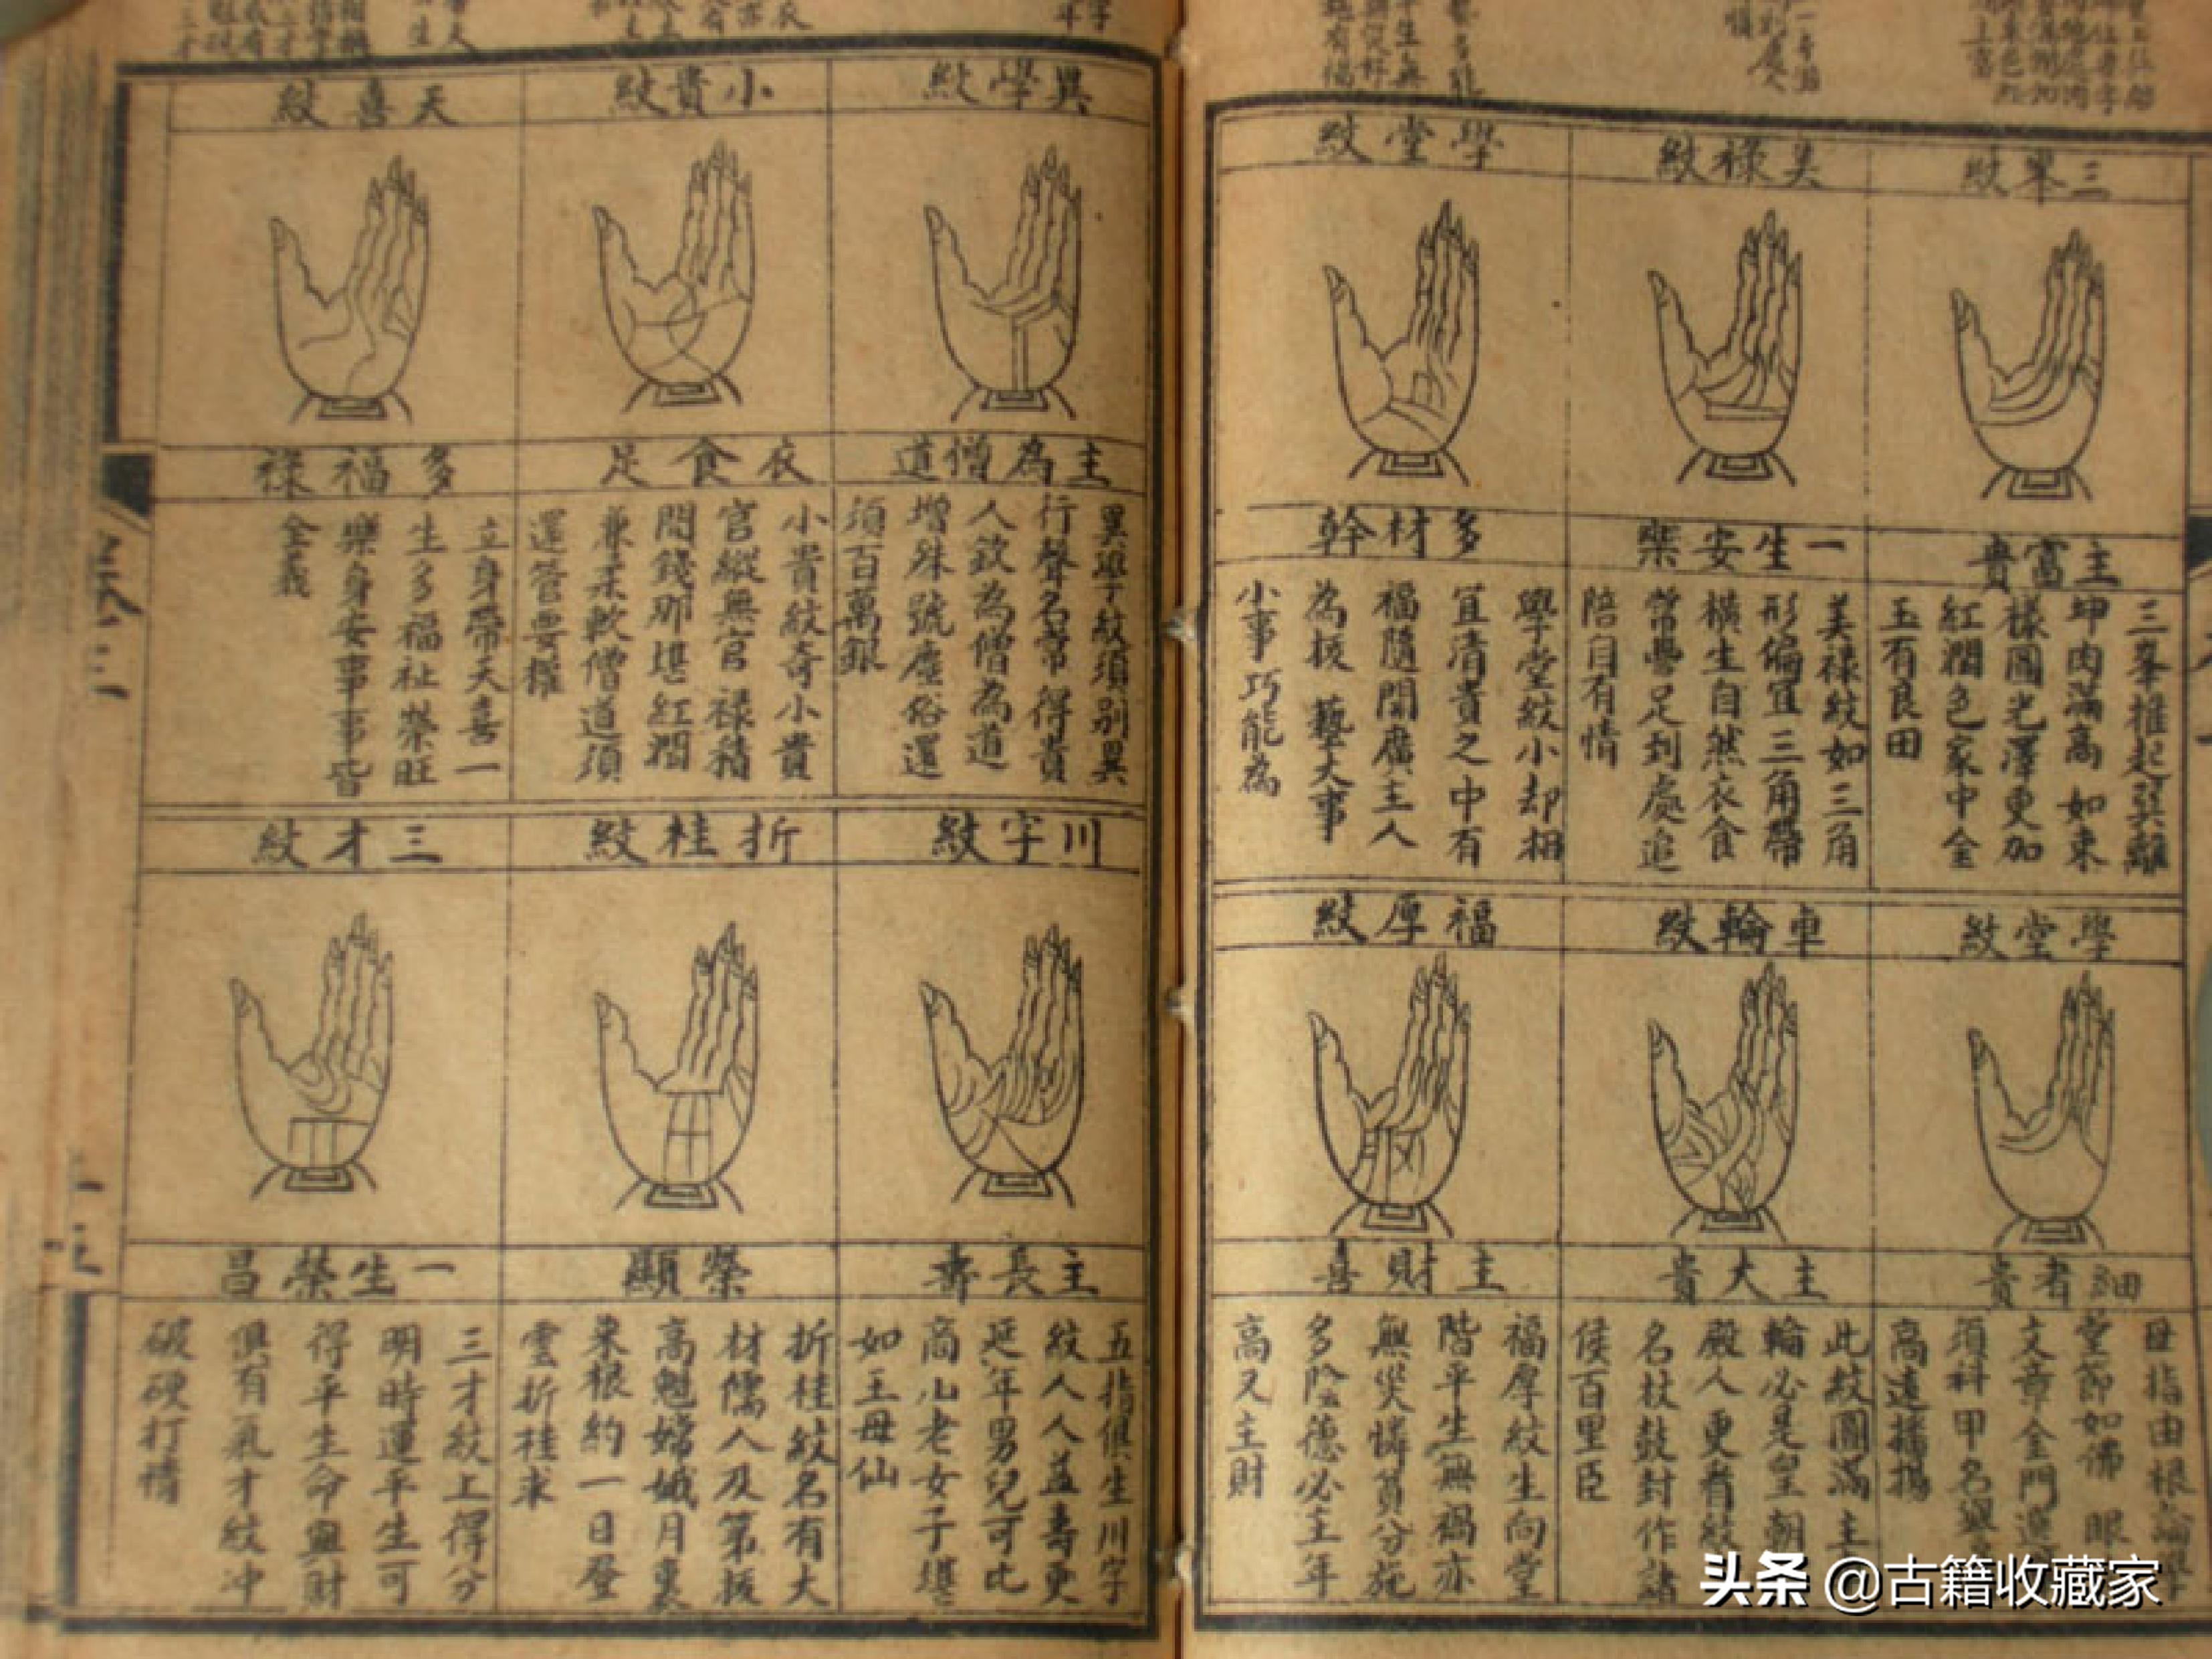 三峯紋
主富貴
三峯推起巽離
坤肉滿高如束
樣圓光澤更加
紅潤色家中金
玉有良田
美祿紋
一生安樂
美祿紋如三角
形偏宜三角帶
橫生自然衣食
常豐足到處追
陪自有情
學堂紋
多材幹
學堂紋小却相
宜清貴之中有
福隨閒廣主人
為拔藝大事
小事巧能為
學堂紋
貴者
母指由根論學
堂節如佛眼
文章金門選
須科甲名與
高遠播揚
車輪紋
主大貴
此紋圓滿主
輪必是皇朝
殿人更看紋
名杖鼓封作諸
侯百里臣
福厚紋
主財喜
福厚紋生向堂
階平生無禍亦
無災憐貧分施
多陰德必主年
高又主財
異學紋
主為僧道
異學紋須別異
行聲名常得貴
人欽為僧為道
增殊號塵俗還
須百萬銀
小貴紋
衣食足
小貴紋奇小貴
官縱無官祿積
閒錢那堪紅潤
兼柔軟僧道須
還管要權
天喜紋
多福祿
立身帶天喜一
生多福祉榮旺
樂身安事事皆
全義
川字紋
主長壽
五指俱生川字
紋人人益壽更
延年男兒可比
商山老女子堪
如王母仙
折桂紋
榮顯
折桂紋名有大
材儒人及第拔
高魁嫦娥月裏
來根約一日登
雲折桂求
三才紋
一生榮昌
三才紋上得分
明時運平生可
得平生命與財
俱有氣才紋冲
破硬打情
卷三
头条 @古籍收藏家